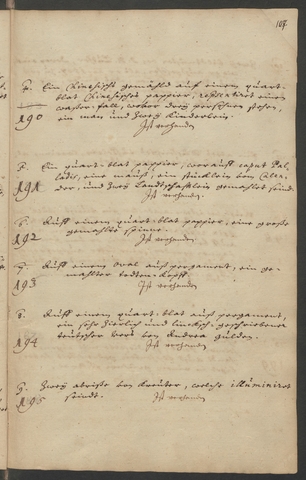 107.
2. Ein Chinesisch gemähld auf einem quart-
blat Chinesisch pappier, repræsentirt einen
wasser-fall, wobey drey persohnen stehen,
190 ein man und zwey kinderlein.
Ist vorhanden
4. Ein quart-blat pappier, worauff caput Pal-
ladis, eine mauß, ein stücklein von
191 der, und zwey Landschafftlein gemahlet seind.
Ist vorhanden.
5. Auff einem quart-blat pappier, eine große
192 gemahlte spinne.
Ist vorhanden.
7. Auff einem oval auß pergament, ein ge-
193 mahlter todten-kopff.
Ist vorhanden
8. Auff einem quart-blat auß pergament,
ein sehr zierlich und künstl. geschriebener
194 teutscher verß von Andrea Gulden.
Ist vorhanden
9. Zwey abriße von kräuter, welche illuminiret
195 seindt.
Ist vorhanden